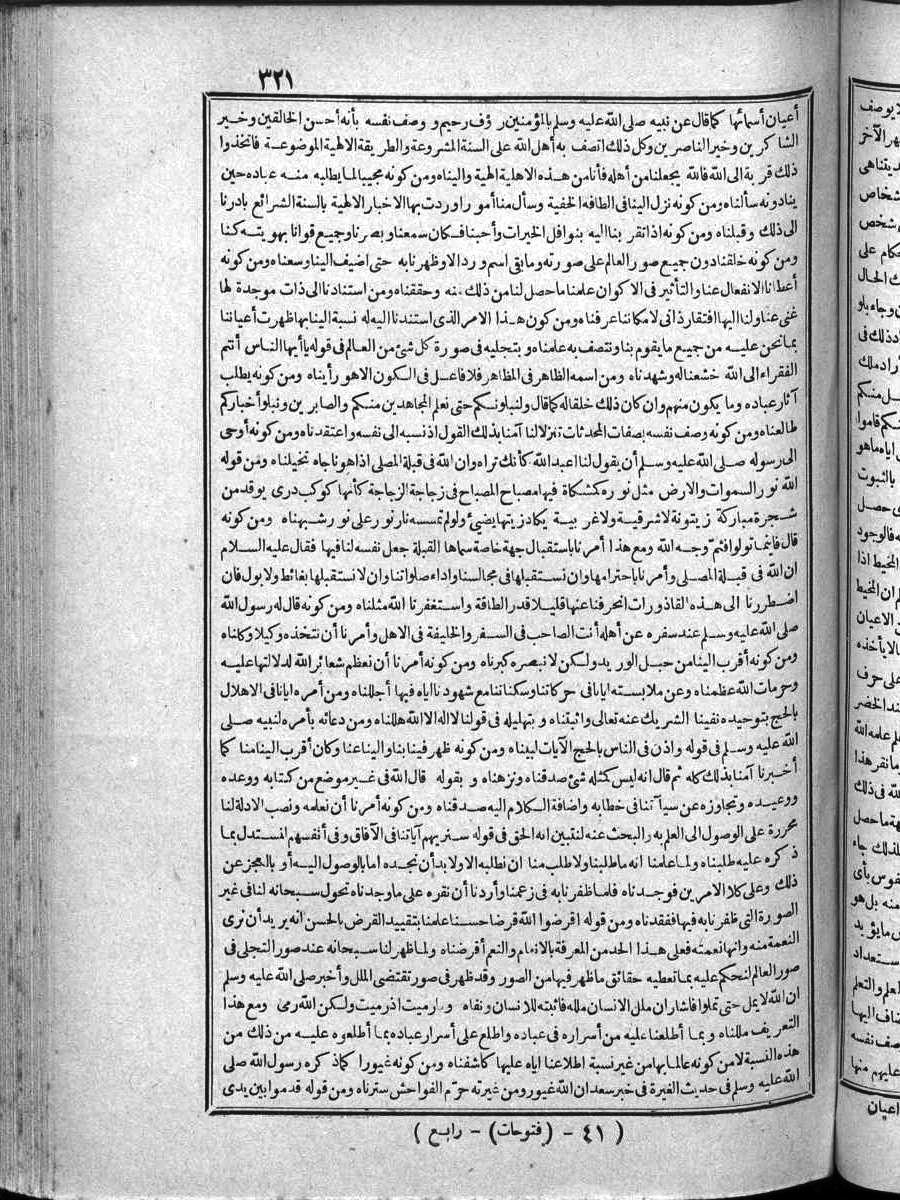 ٣٢١
أعيان أسمائها كما قال عن نبيه صلى الله عليه وسلم بالمؤمنين رؤف رحيم و وصف نفسه بأنه أحسن الخالقين وخير
الشاكرين وخير الناصرين وكل ذلك اتصف به أهل الله على السنة المشروعة والطريقة الالهية الموضوعة فاتخذوا
ذلك قربة الى الله فالله يجعلنا من أهله فأنا من هذه الاهلية الهية والينا ومن كونه مجيبا لما يطالبه منه عباده حين
ينادونه سألناه ومن كونه نزل الينا فى الطافه الخفية وسأل منا أمورا وردت بها الاخبار الالهية بالسنة الشرائع بادرنا
الى ذلك وقبلناه ومن كونه اذا تقربنا اليه بنوافل الخيرات وأحبنا فكان سمعنا وبصرنا وجميع قوانا بهويته كنا
ومن كونه خلقنا دون جميع صور العالم على صورته وما بقى اسم ورد الا وظهرنا به حتى اضيف الينا وسعناه ومن كونه
أعطانا الانفعال عنا والتأثير فى الاكوان علمنا ما حصل لنا من ذلك منه وحققناه ومن استنادنا الى ذات موجدة لها
غنى عنا ولنا اليها افتقار ذاتى لامكاننا عرفناه ومن كون هذا الامر الذى استندنا اليه له نسبة الينا بها ظهرت أعياننا
بما نحن عليه من جميع ما يقوم بنا ونتصف به علمناه وبتجليه فى صورة كل شئ من العالم فى قوله يا أيها الناس أنتم
الفقراء الى الله خشعنا له وشهدناه ومن اسمه الظاهر فى المظاهر فلا فاعل فى الكون الا هو رأيناه ومن كونه يطلب
آثار عباده وما يكون منهم وان كان ذلك خلقا له كما قال ولنبلونكم حتى نعلم المجاهدين منكم والصابرين ونبلوا أخباركم
طالعناه ومن كونه وصف نفسه بصفات المحدثات تنزلا لنا آمنا بذلك القول اذ نسبه الى نفسه واعتقدناه ومن كونه أوحى
الى رسوله صلى الله عليه وسلم أن يقول لنا اعبد الله كأنك تراه وان الله فى قبلة المصلى اذا هو ناجاه تخيلناه ومن قوله
الله نور السموات والارض مثل نوره كمشكاة فيها مصباح المصباح فى زجاجة الزجاجة كأنها كوكب درى يوقد من
شجرة مباركة زيتونة لا شرقية ولا غربية يكاد زيتها يضئ ولو لم تمسسه نار نور على نور شبهناه ومن كونه
قال فأينما تولوا فثم وجه الله ومع هذا أمرنا باستقبال جهة خاصة سماها القبلة جعل نفسه لنا فيها فقال عليه السلام
ان الله فى قبلة المصلى وأمرنا باحترامها وان نستقبلها فى مجالسنا واداء صلواتنا وان لا نستقبلها بغائط ولا بول فان
اضطررنا الى هذه القاذورات انحرفنا عنها قليلا قدر الطاقة واستغفرنا الله مثلناه ومن كونه قال له رسول الله
صلى الله عليه وسلم عند سفره عن أهله أنت الصاحب فى السفر والخليفة فى الاهل وأمرنا أن نتخذه وكيلا وكلناه
ومن كونه أقرب الينا من حبل الوريد ولكن لا نبصره كبرناه ومن كونه أمرنا أن نعظم شعائر الله لدلالتها عليه
وحرمات الله عظمناه وعن ملابسته ايانا فى حركاتنا وسكناتنا مع شهودنا اياه فيها أجللناه ومن أمره ايانا فى الاهلال
بالحج بتوحيده نفينا الشريك عنه تعالى واثبتناه وبتهليله فى قولنا لا اله الا الله هللناه ومن دعائه بأمره لنبيه صلى
الله عليه وسلم فى قوله واذن فى الناس بالحج الآيات لبيناه ومن كونه ظهر فينا بنا والينا عنا وكان أقرب الينا منا كما
أخبرنا آمنا بذلك كله ثم قال انه ليس كمثله شئ صدقناه ونزهناه وبقوله قال الله فى غير موضع من كتابه ووعده
ووعيده وتجاوزه عن سيآتنا فى خطابه واضافة الكلام اليه صدقناه ومن كونه أمرنا أن نعلمه ونصب الادلة لنا
محررة على الوصول الى العلم به والبحث عنه لنتبين انه الحق فى قوله سنريهم آياتنا فى الآفاق وفى أنفسهم لنستدل بما
ذكره عليه طلبناه ولما علمنا انه ما طلبنا ولا طلب منا ان نطلبه الا ولا بد أن نجده اما بالوصول اليه أو بالعجز عن
ذلك وعلى كلا الامرين فوجدناه فلما ظفرنا به فى زعمنا وأردنا أن نقره على ما وجدناه تحول سبحانه لنا فى غير
الصورة التى ظفرنا به فيها ففقدناه ومن قوله اقرضوا الله قرضا حسنا علمنا بتقييد القرض بالحسن انه يريد أن نرى
النعمة منه وانها نعمته فعلى هذا الحد من المعرفة بالانعام والنعم أقرضناه ولما ظهر لنا سبحانه عند صور التجلى فى
صور العالم لنحكم عليه بما تعطيه حقائق ما ظهر فيها من الصور وقد ظهر فى صور تقتضى الملل وأخبر صلى الله عليه وسلم
ان الله لا يمل حتى تملوا فاشار ان ملل الانسان ملله فاثبته للانسان ونفاه وما رميت اذ رميت ولكن الله رمى ومع هذا
التعريف مللناه وبما أطلعنا عليه من أسراره فى عباده واطلع على أسرار عباده بما أطلعوه عليه من ذلك من
هذه النسبة لا من كونه عالما بها من غير نسبة اطلاعنا اياه عليها كاشفناه ومن كونه غيورا كما ذكره رسول الله صلى
الله عليه وسلم فى حديث الغيرة فى خبر سعد ان الله غيور ومن غيرته حرّم الفواحش سترناه ومن قوله قدموا بين يدى
( ٤١ - (فتوحات) - رابع )